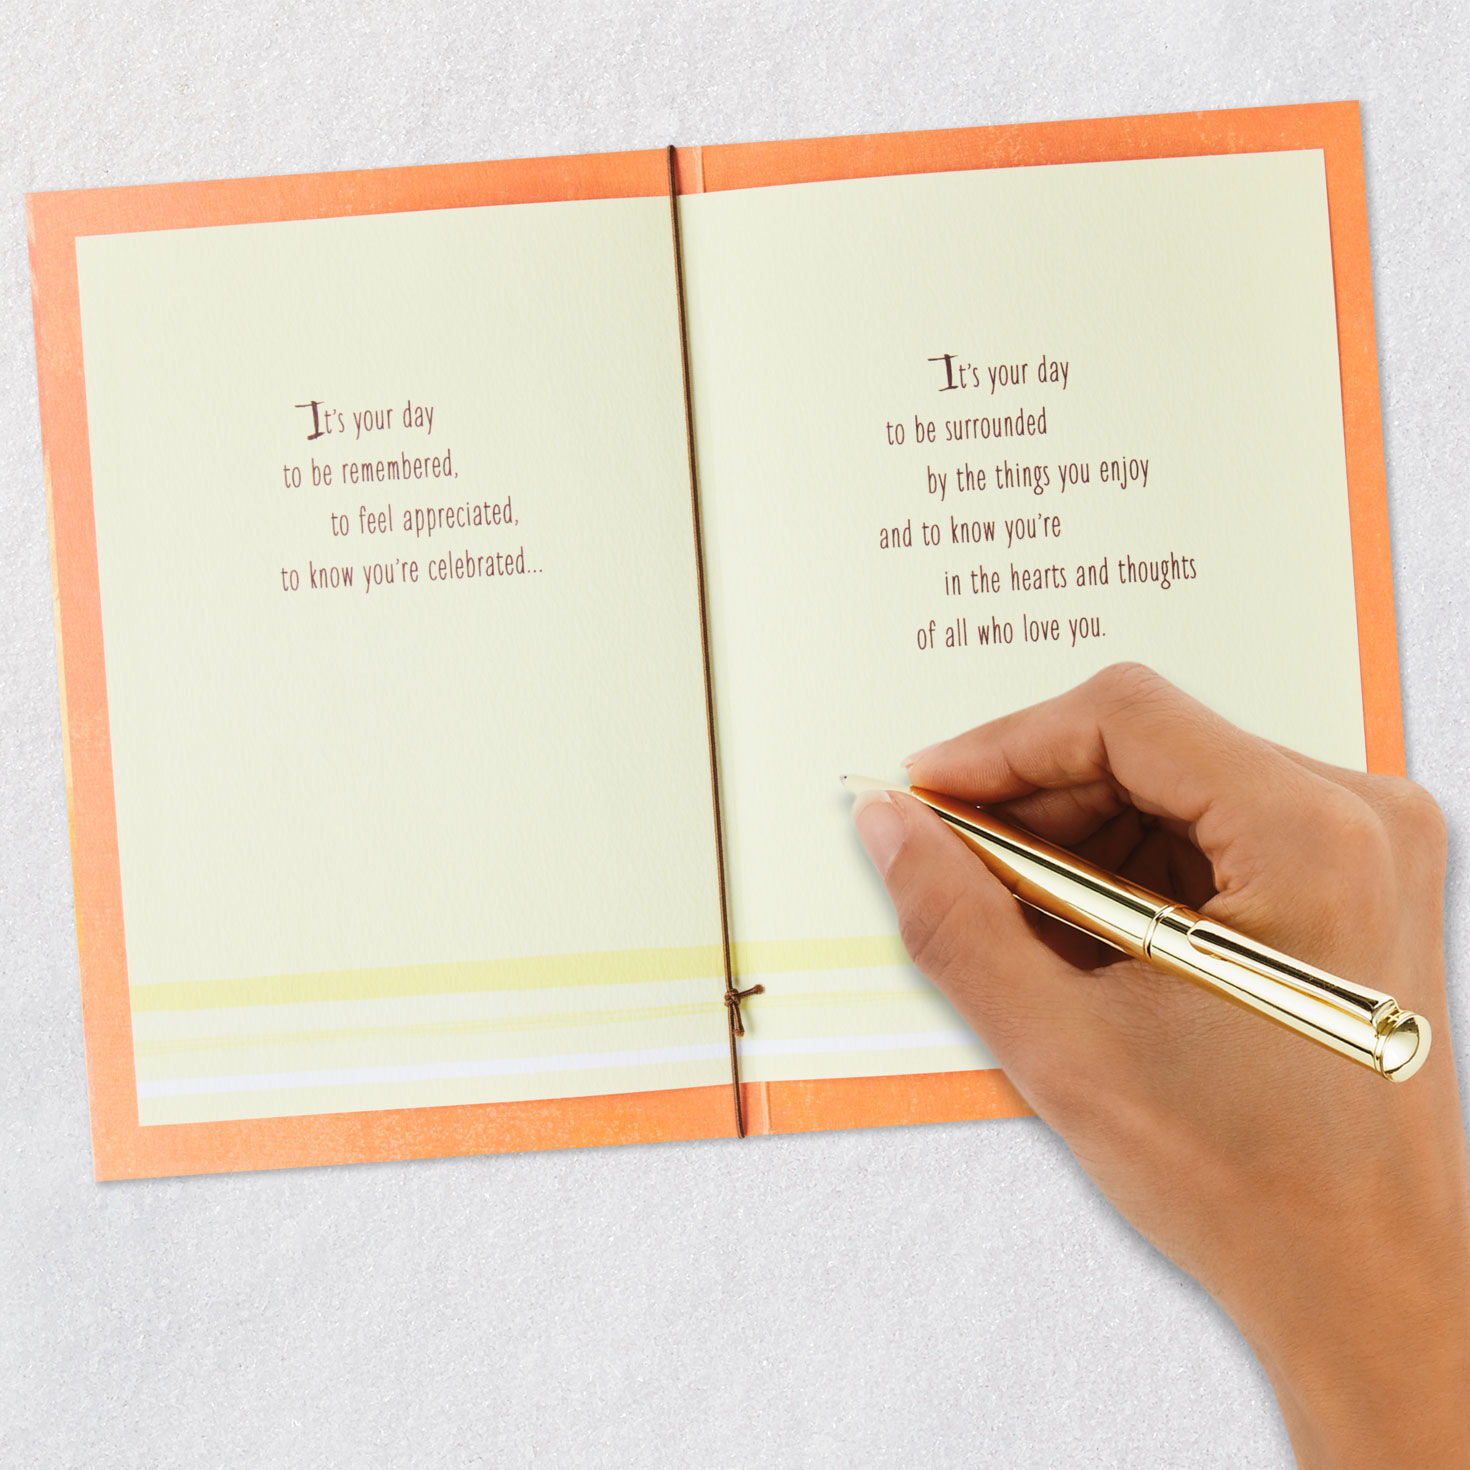 It's your day
to be remembered,
to feel appreciated,
to know you're celebrated...
It's your day
to be surrounded
by the things you enjoy
and to know you're
in the hearts and thoughts
of all who love you.